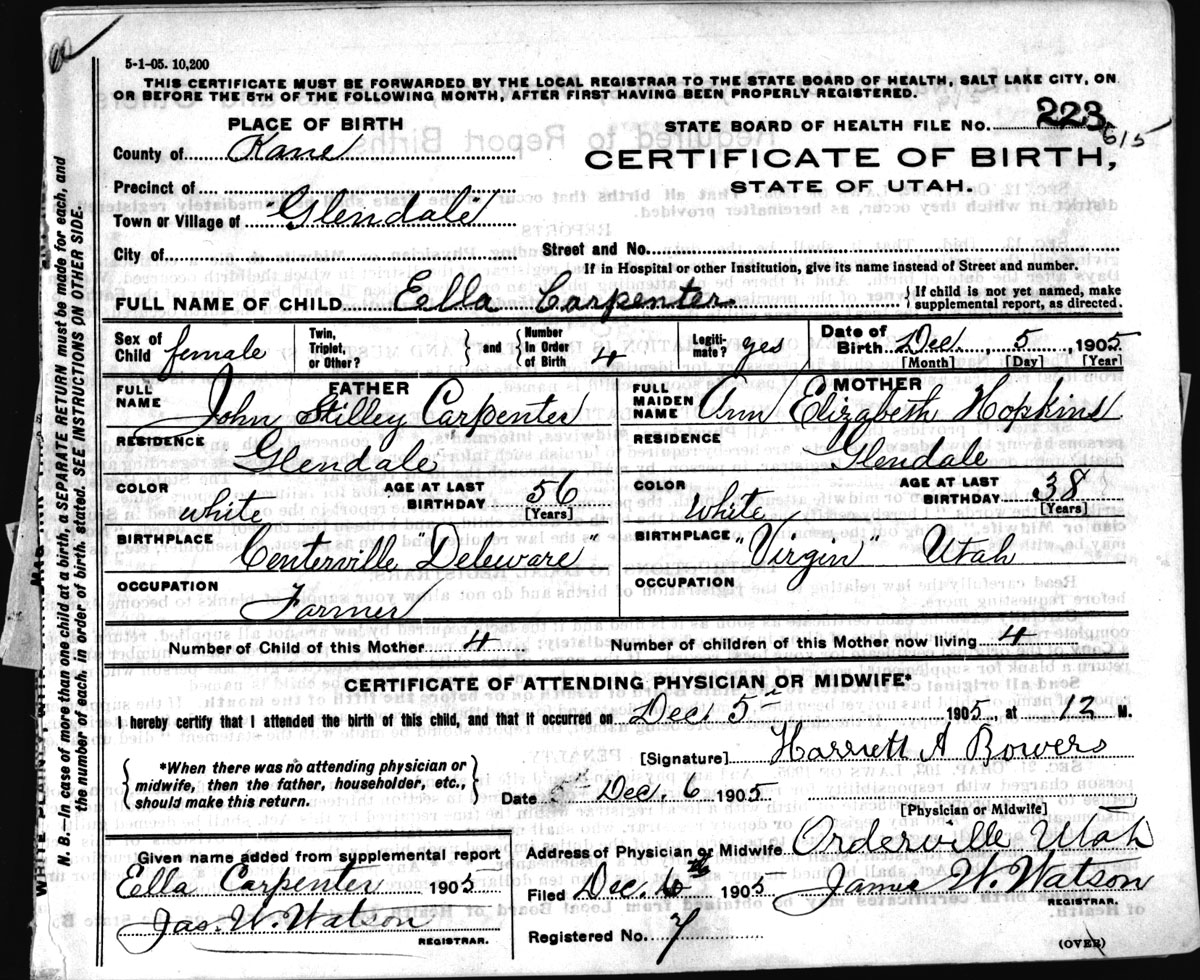 5-1-05. 10,200
THIS CERTIFICATE MUST BE FORWARDED BY THE LOCAL REGISTRAR TO THE STATE BOARD OF HEALTH, SALT LAKE CITY, ON
OR BEFORE THE 5TH OF THE FOLLOWING MONTH, AFTER FIRST HAVING BEEN PROPERLY REGISTERED.
PLACE OF BIRTH
STATE BOARD OF HEALTH FILE No. 223
615
County of Kane
CERTIFICATE OF BIRTH,
STATE OF UTAH.
Precinct of
Town or Village of "Glendale"
City of
Street and No.
If in Hospital or other Institution, give its name instead of Street and number.
FULL NAME OF CHILD Ella Carpenter.
{ If child is not yet named, make
supplemental report, as directed.
Sex of Child female
Twin, Triplet, or Other? } and { Number in Order of Birth 4
Legitimate? yes
Date of Birth Dec. 5, 1905
[Month] [Day] [Year]
FATHER
FULL NAME John Stilley Carpenter
RESIDENCE Glendale
COLOR white
AGE AT LAST BIRTHDAY 56
[Years]
BIRTHPLACE Centerville "Deleware"
OCCUPATION Farmer
MOTHER
FULL MAIDEN NAME Ann Elizabeth Hopkins
RESIDENCE Glendale
COLOR White
AGE AT LAST BIRTHDAY 38
[Years]
BIRTHPLACE "Virgin" Utah
OCCUPATION
Number of Child of this Mother 4
Number of children of this Mother now living 4
CERTIFICATE OF ATTENDING PHYSICIAN OR MIDWIFE*
I hereby certify that I attended the birth of this child, and that it occurred on Dec 5th 1905, at 12 M.
[Signature] Harriett A Bowers
{ *When there was no attending physician or
midwife, then the father, householder, etc.,
should make this return. }
Date Dec. 6 1905
[Physician or Midwife]
Given name added from supplemental report
Ella Carpenter 1905
Jas. W. Watson
REGISTRAR.
Address of Physician or Midwife Orderville Utah
Filed Dec. 1905 James W. Watson
REGISTRAR.
Registered No. 7
(OVER)
N. B.—In case of more than one child at a birth, a SEPARATE RETURN must be made for each, and
the number of each, in order of birth, stated. SEE INSTRUCTIONS ON OTHER SIDE.